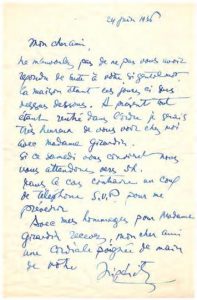 24 juin 1936
Mon cher ami,
Ne m'en voulez pas de ne pas vous avoir
répondu de suite à votre si gentil mot
la maison étant ces jours ci sens
dessus dessous. A présent tout
étant rentré dans l'ordre je serais
très heureux de vous voir chez moi
avec madame Girardin.
Si ce samedi vous convient nous
vous attendons vers 5h.
Dans le cas contraire un coup
de téléphone S.V.P pour me
prévenir
Avec mes hommages pour Madame
Girardin recevez, mon cher ami
une cordiale poignée de main
de votre